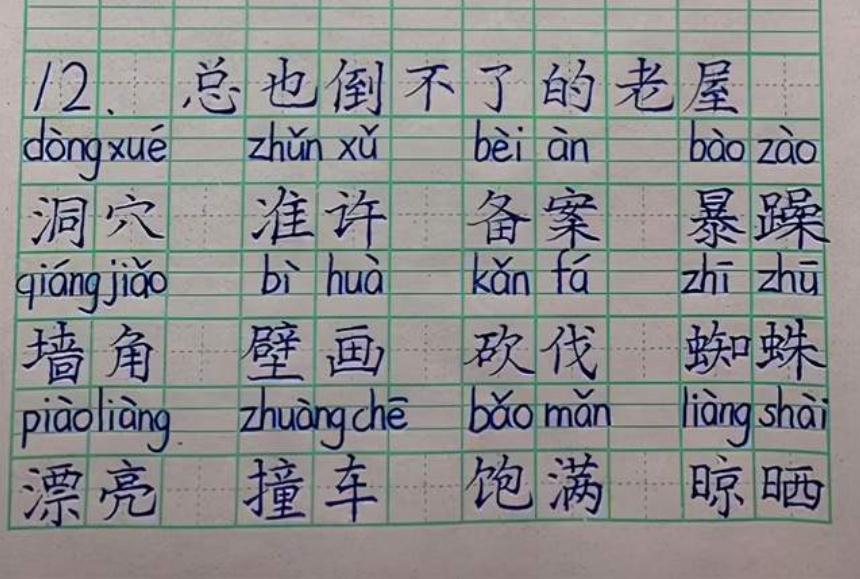 12、总也倒不了的老屋
dòng xué zhǔn xǔ bèi àn bào zào
洞穴 准许 备案 暴躁
qiáng jiǎo bì huà kǎn fá zhī zhū
墙角 壁画 砍伐 蜘蛛
piào liàng zhuàng chē bǎo mǎn liàng shài
漂亮 撞车 饱满 晾晒